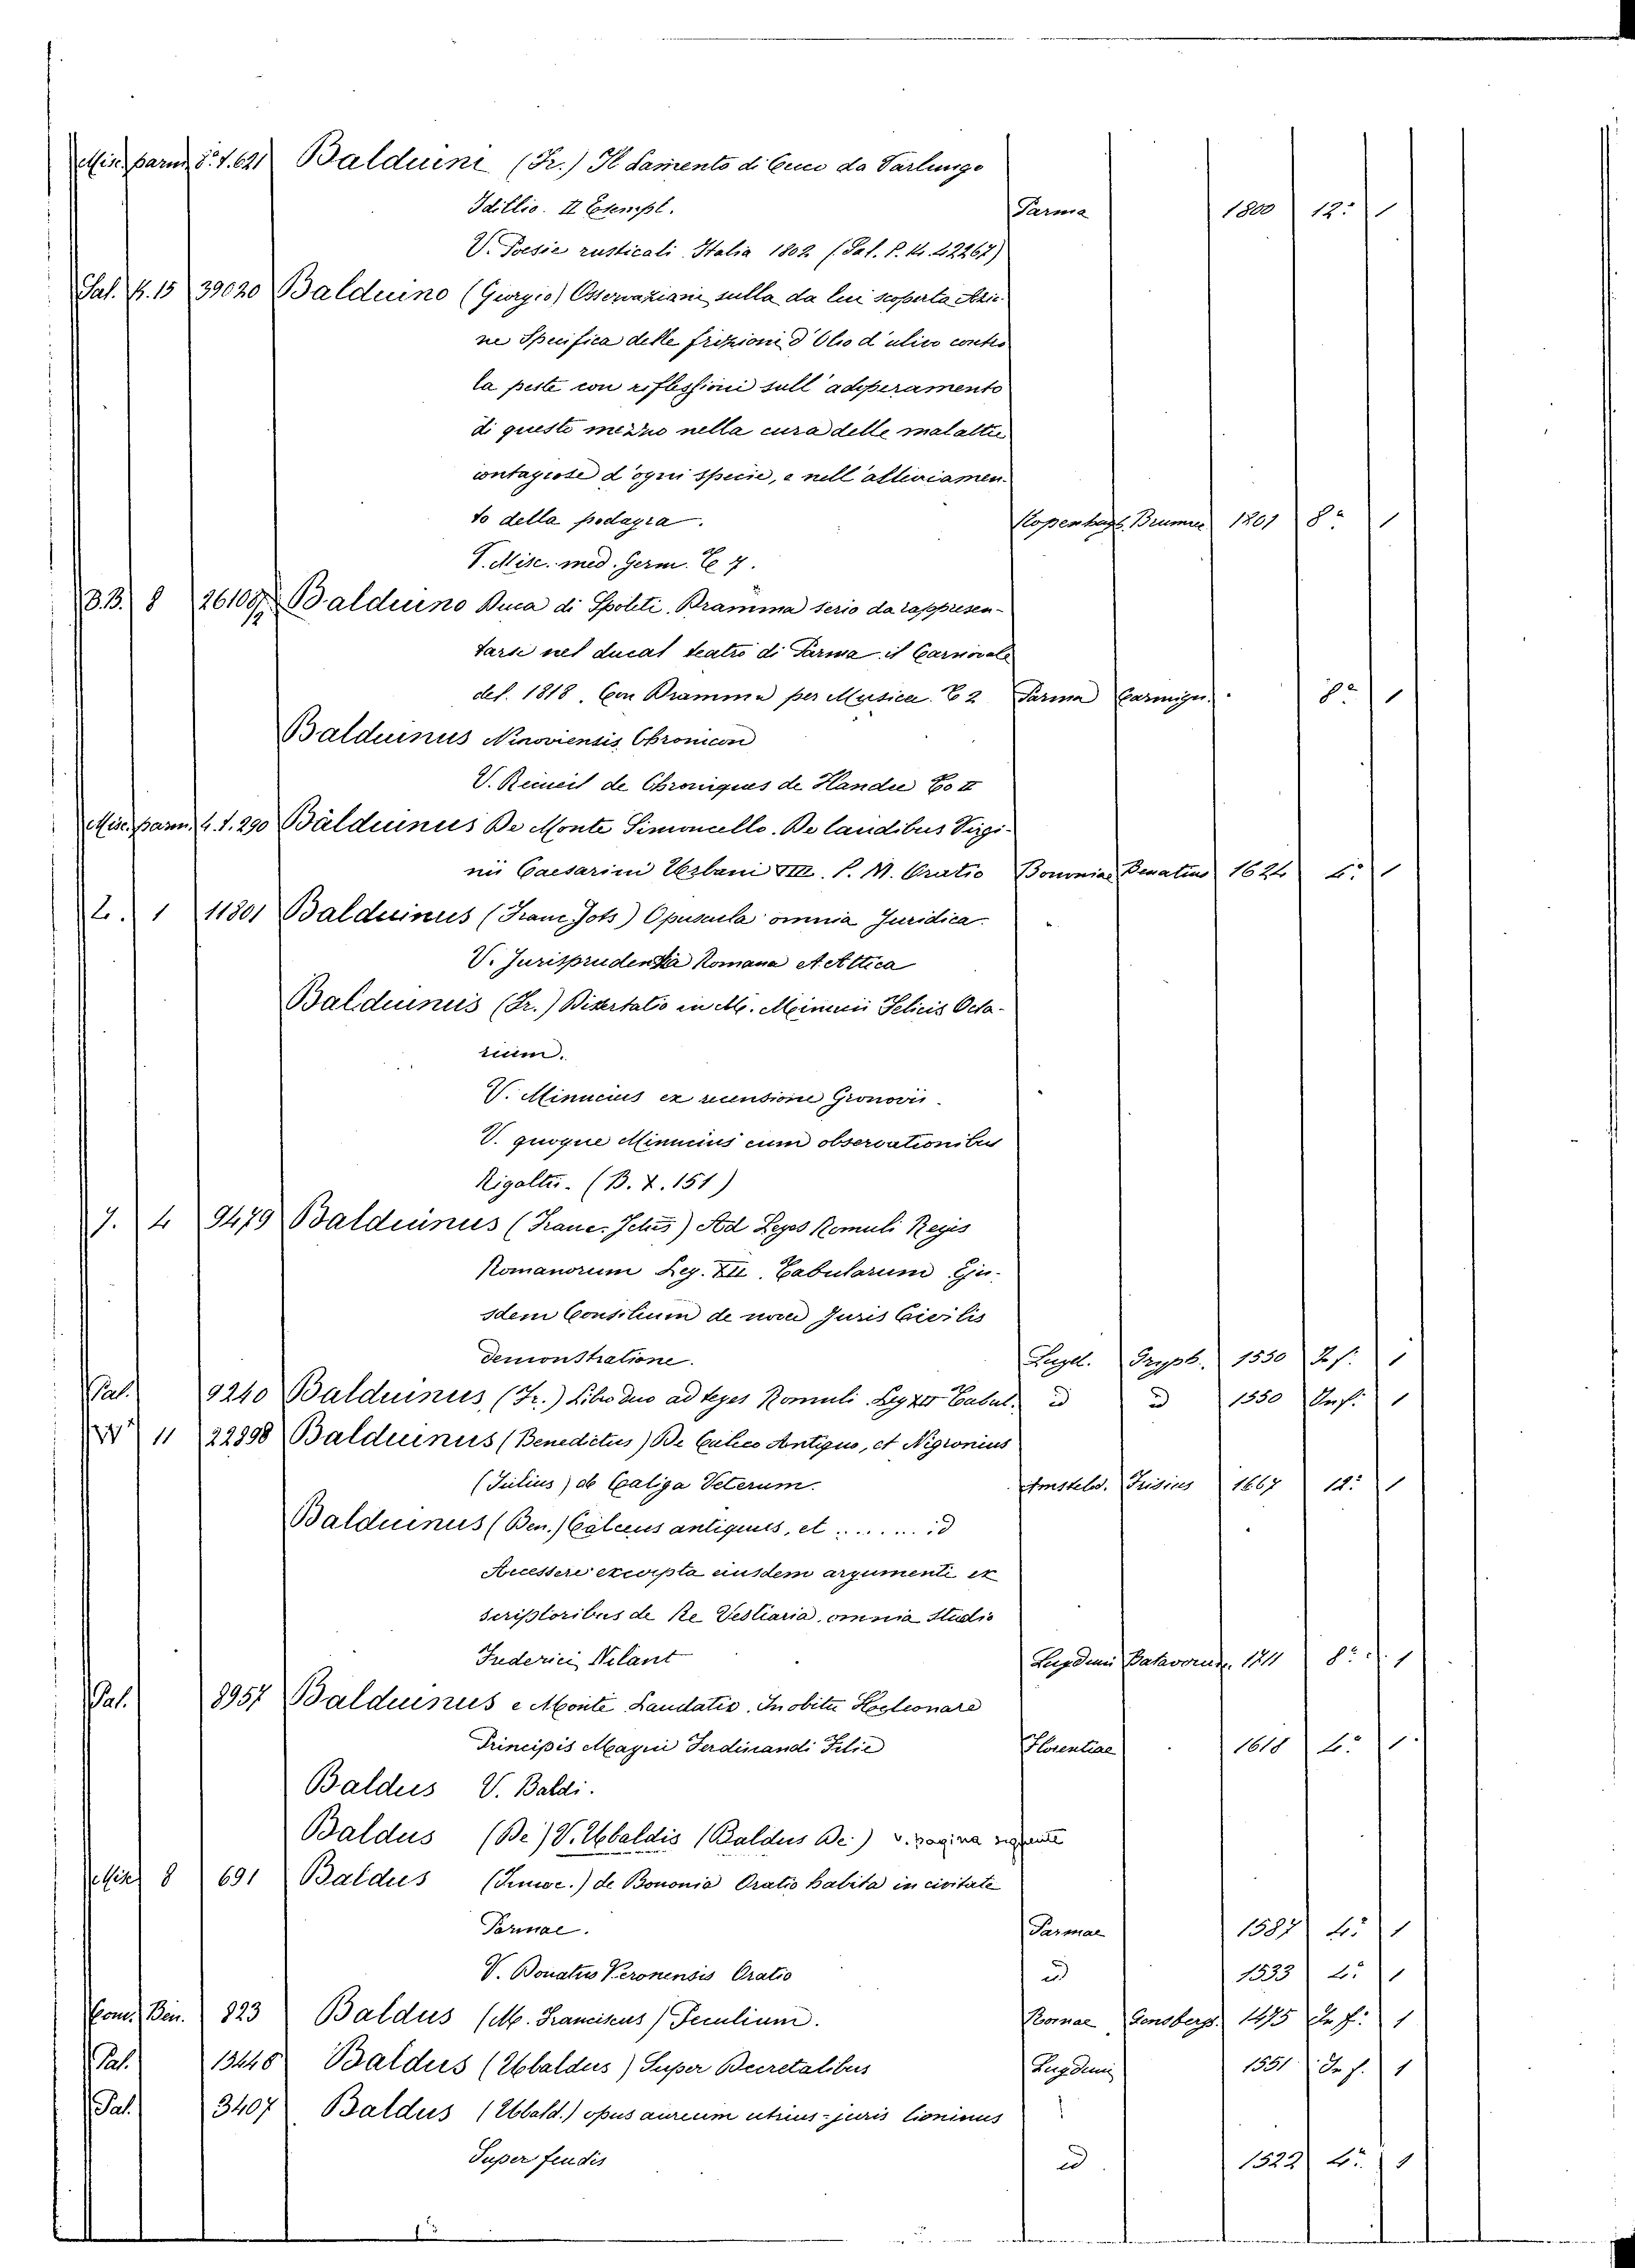 Misc. parm. 8.º t. 621 Balduini (Fr.) Il Lamento di Cecco da Varlungo
Idillio. II Esempl. Parma 1800 12.º 1
V. Poesie rusticali Italia 1802 (Pal. P. 42267)
Pal. 15 39020 Balduino (Giorgio) Osservazioni sulla da lui scoperta Azio-
ne Specifica delle frizioni d'Olio d'ulivo contro
la peste con riflessioni sull'adoperamento
di questo mezzo nella cura delle malattie
contagiose d'ogni specie, e nell'alleviamen-
to della podagra. Kopenhag. Brumer 1801 8.º 1
V. Misc. med. Germ. T. 7.
B.B. 8 26109 Balduino Duca di Spoleti. Dramma serio da rappresen-
tarsi nel ducal teatro di Parma il Carnovale
del. 1818. Con Dramma per Musica. T. 2 Parma Carmign. 8.º 1
Balduinus Ninoviensis Chronicon
V. Recueil de Chroniques de Flandre To II
Misc. parm. 4. t. 290 Balduinus De Monte Simoncello. De laudibus Virgi-
nii Caesarini Urbani VIII. P. M. Oratio Bononiae Benatius 1624 4.º 1
1 11801 Balduinus (Franc. Jcts) Opuscula omnia Juridica.
V. Jurisprudentia Romana et Attica
Balduinus (Fr.) Disertatio in M. Minucii Felicis Octa-
vium.
V. Minucius ex recensione Gronovii.
V. quoque Minucius cum observationibus
Rigaltii. (B. X. 151)
4 9479 Balduinus (Franc. Jctus) Ad Leges Romuli Regis
Romanorum Leg. XII. Tabularum Eju-
sdem Consilium de nova Juris Civilis
demonstratione. Lugd. Gryph. 1550 1
Pal. 9240 Balduinus, (Fr.) Libri duo ad leges Romuli Leg XII Tabul. id id 1550 In f. 1
11 22898 Balduinus (Benedictus) De Calceo Antiquo, et Nigronius
(Julius) de Caliga Veterum. Amstelod. Frisius 1667 12.º 1
Balduinus (Ben.) Calceus antiquus, et ........ id
Accessere excerpta eiusdem argumenti ex
scriptoribus de Re Vestiaria, omnia studio
Frederici Nilant Lugduni Batavorum. 1711 8.º 1
Pal. 8957 Balduinus e Monte Laudatio. In obitu
Principis Magni Ferdinandi Filie Florentiae 1618 4.º 1
Baldus V. Baldi.
Baldus (De) V. Ubaldis (Baldus De) v. pagina seguente
Misc. 8 691 Baldus (Innoc.) de Bononia Oratio habita in civitate
Parmae. Parmae 1587 4.º 1
V. Donatus Veronensis Oratio id 1533 4.º 1
Com. Ben. 823 Baldus (M. Franciscus) Peculium. Romae Gensberg. 1475 In f. 1
Pal. 13448 Baldus (Ubaldus) Super Decretalibus Lugduni 1551 In f. 1
Pal. 3407 Baldus (Ubald.) opus aureum utrius-juris
Super feudis id 1522 4.º 1